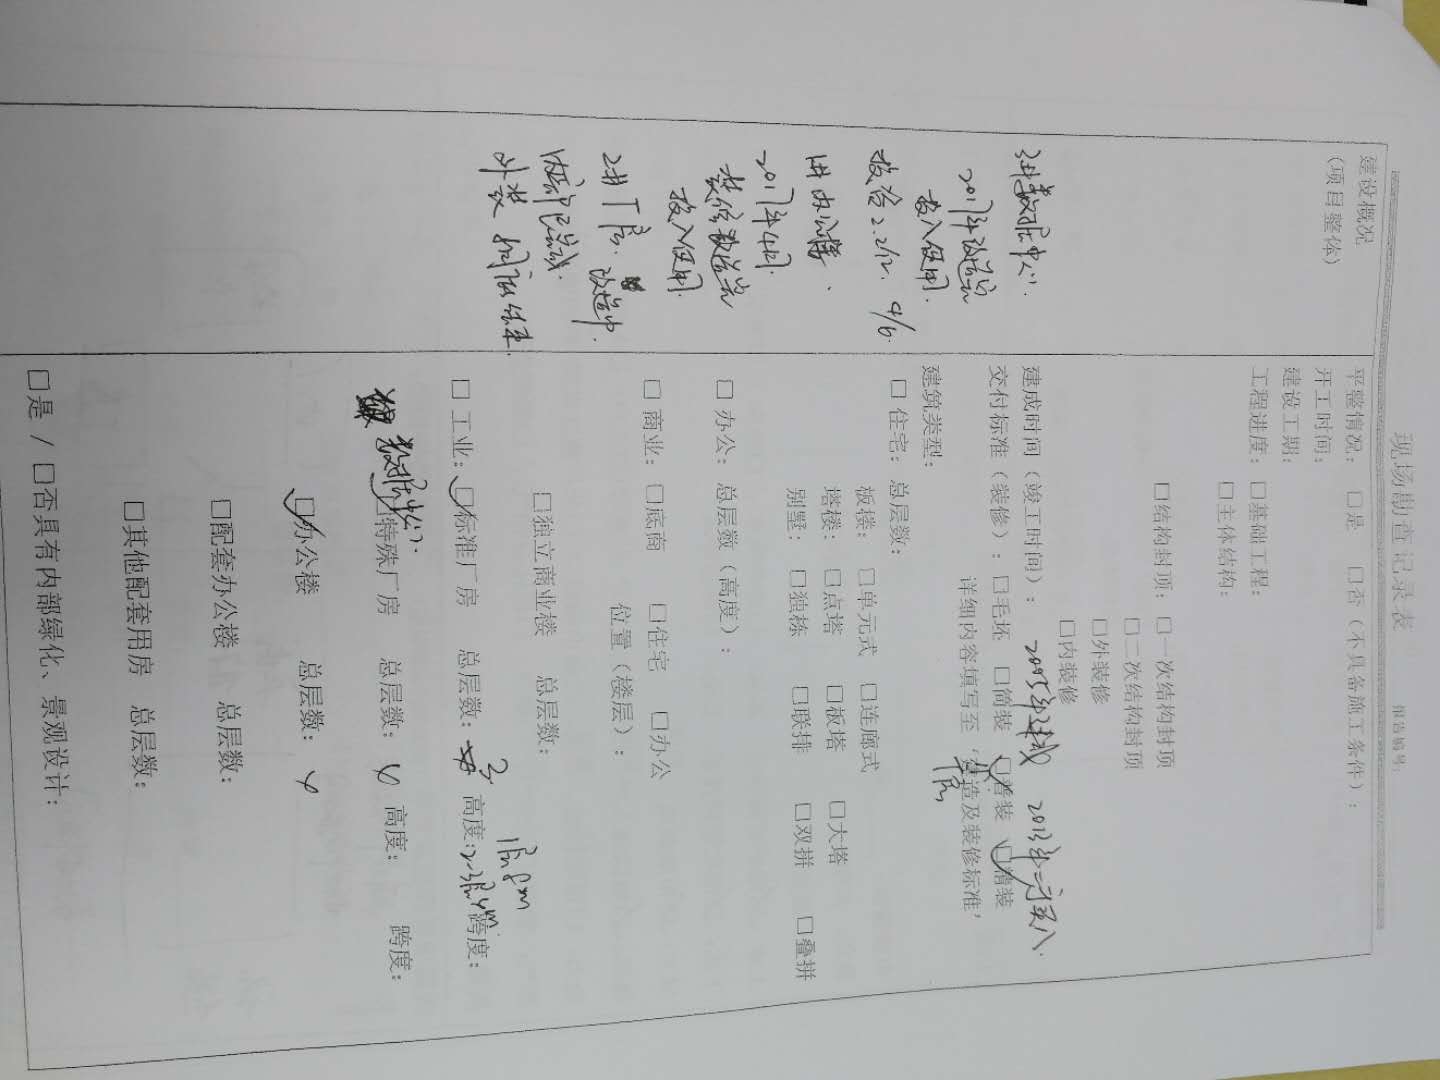 现场勘查记录表
报告编号:
建设概况
(项目整体)
3#数据中心.
2017年改造完
投入使用.
投资2.2亿.
1# 办公楼.
2017年4月.
装修改造完
投入使用.
2#厂房. 改造中
内部已完成.
外装 8月底结束.
平整情况: □是 □否(不具备施工条件):
开工时间:
建设工期:
工程进度: □基础工程:
□主体结构:
□结构封顶: □一次结构封顶
□二次结构封顶
□外装修
□内装修
建成时间(竣工时间): 2005年建成 2013年二手买入.
交付标准(装修): □毛坯 □简装 □普装 □精装
详细内容填写至“建造及装修标准”
厂房
建筑类型:
□ 住宅: 总层数:
板楼: □单元式 □连廊式
塔楼: □点塔 □板塔 □大塔
别墅: □独栋 □联排 □双拼 □叠拼
□ 办公: 总层数(高度):
□ 商业: □底商 □住宅 □办公
位置(楼层):
□独立商业楼 总层数:
□ 工业: □标准厂房 总层数: 3 高度: 跨度:
1层8m
2-3层4m
数据中心.
□特殊厂房 总层数: 高度: 跨度:
□办公楼 总层数: 4
□配套办公楼 总层数:
□其他配套用房 总层数:
□是 / □否具有内部绿化、景观设计: